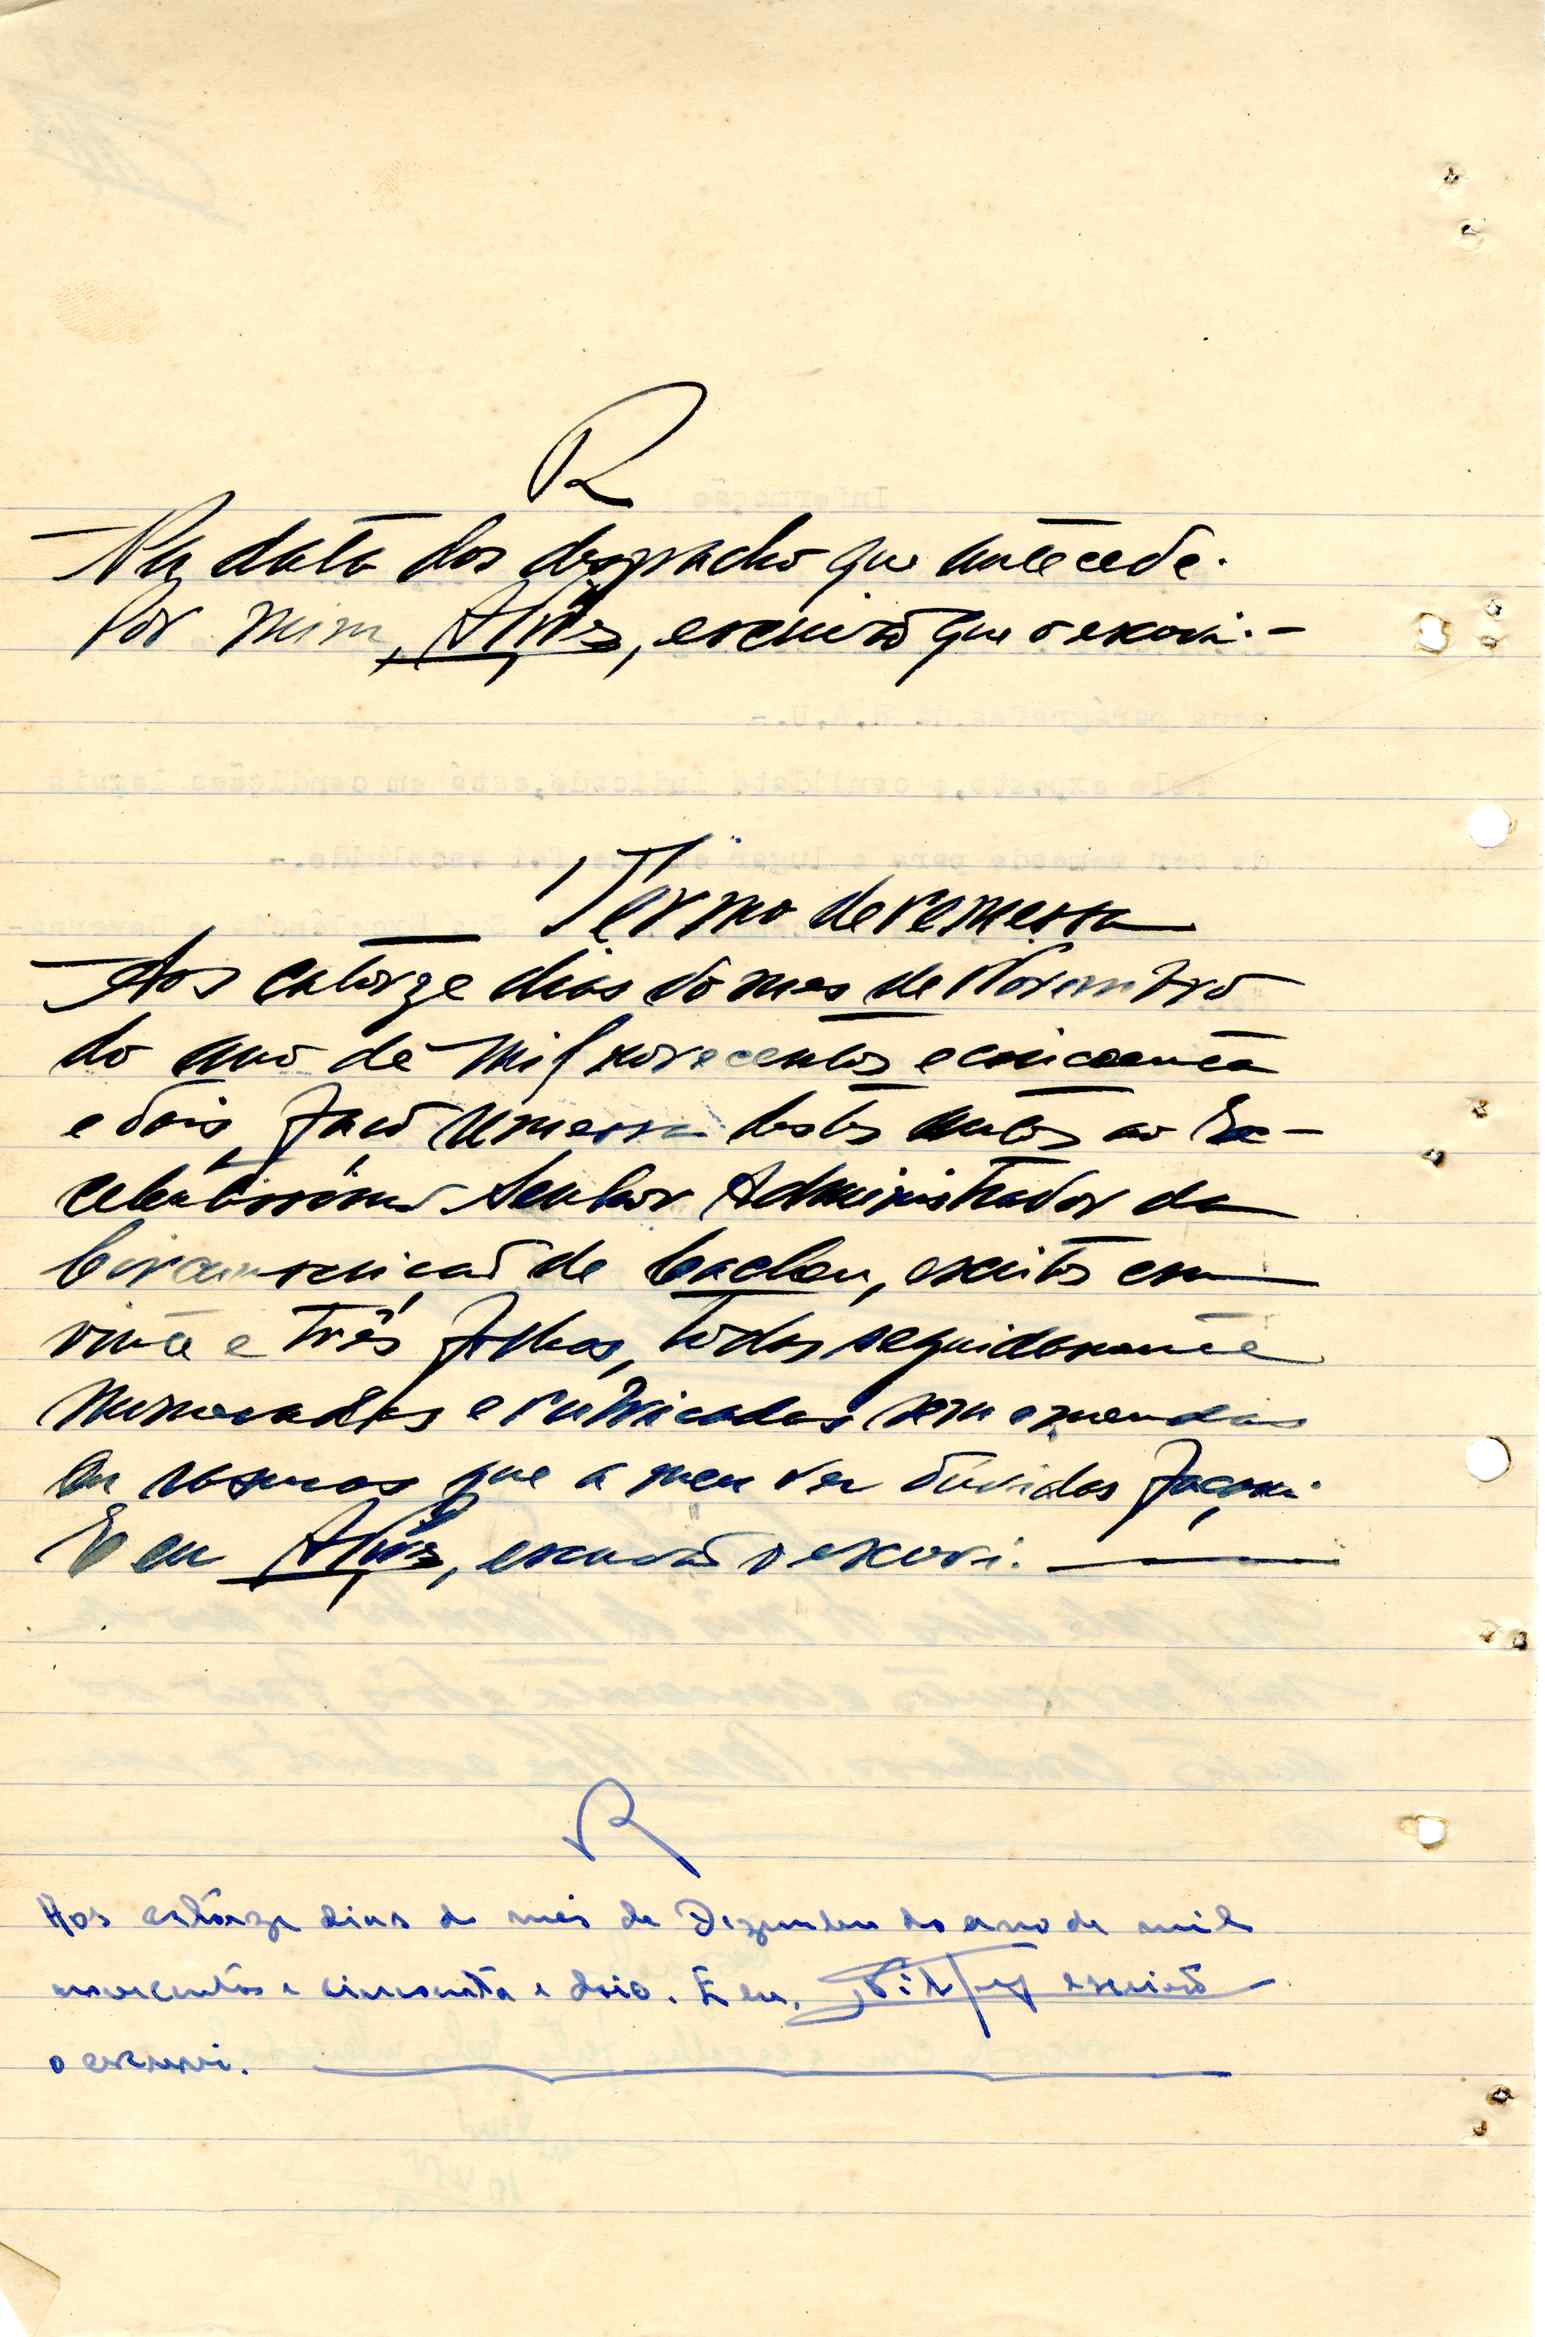 R
Na data dos despacho que antecede.
Por mim, Alves, escrivão que o escrevi.-
Termo de remessa
Aos catorze dias do mes de Novembro
do ano de mil novecentos e cincoenta
e dois, faço remessa destes autos ao Ex-
celentissimo Senhor Administrador da
Circunscrição de Cacheu, escritos em
vinte e três folhas, todas seguidamente
numeradas e rubricadas sem emendas
ou rasuras que a meu ver dúvidas façam.
E eu Alves, escrivão o escrevi.
R
Aos catorze dias do mês de Dezembro do ano de mil
novecentos e cincoenta e dois. E eu, escrivão
o escrevi.